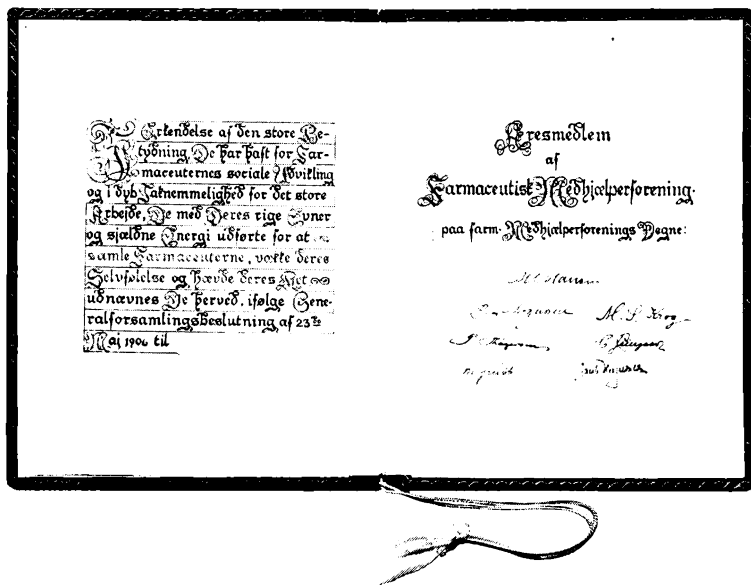 I Erkendelse af den store Be-
tydning, De har haft for Far-
maceuternes sociale Udvikling
og i dyb Taknemmelighed for det store
Arbejde, De med Deres rige Evner
og sjældne Energi udførte for at
samle Farmaceuterne, vække deres
Selvfølelse og hævde deres Ret
udnævnes De herved, ifølge Gene-
ralforsamlingsbeslutning af 23de
Maj 1906 til
Æresmedlem
af
Farmaceutisk Medhjælperforening.
paa farm. Medhjælperforenings Vegne:
M. P. Krog